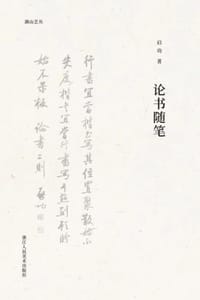 湖山艺丛
启功 著
论书随笔
行書宜當楷書写其位置聚散始不
失度楷書宜當行書写其點劃顧盼
始不呆板 論書二則 啟功
浙江人民美术出版社